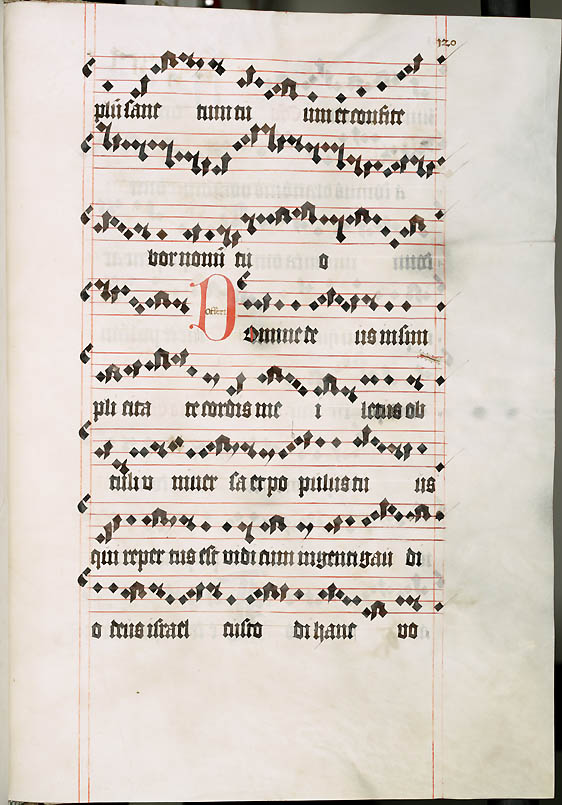 120
plū sanc tum tu um et confite
bor nomī tu o
offert
Domine de us in sim
pli cita te cordis me i letus ob
tuli v niuer sa et po pulus tu us
qui reper tus est vidi cum ingenti gau di
o deus israel custo di hanc vo